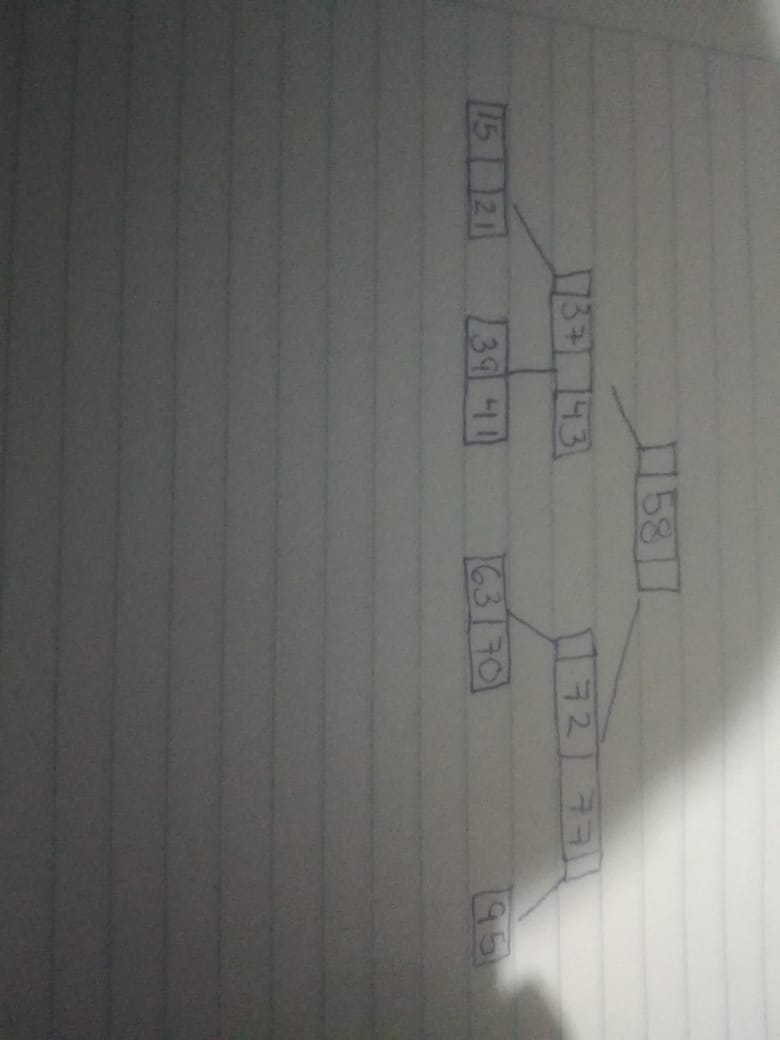 58
37 43 72 77
15 21 39 41 63 70 95